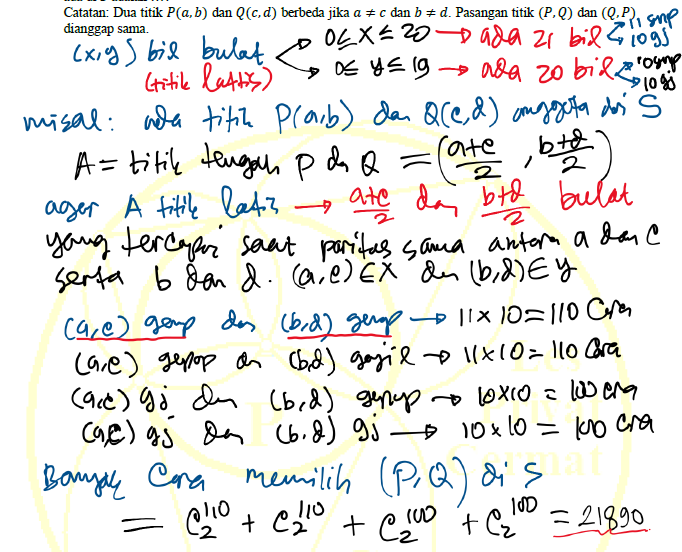 Catatan: Dua titik P(a, b) dan Q(c, d) berbeda jika a ≠ c dan b ≠ d. Pasangan titik (P, Q) dan (Q, P)
dianggap sama.
(x,y) bil bulat
(titik latis)
0 ≤ x ≤ 20 → ada 21 bil
11 gnp
10 gj
0 ≤ y ≤ 19 → ada 20 bil
10 gnp
10 gj
misal: ada titik P(a,b) dan Q(c,d) anggota dri S
A = titik tengah P dn Q = (a+c/2 , b+d/2)
agar A titik latis → a+c/2 dan b+d/2 bulat
yang tercapai saat paritas sama antara a dan c
serta b dan d. (a,c) ∈ X dn (b,d) ∈ y
(a,c) genap dan (b,d) genap → 11 x 10 = 110 Cara
(a,c) genap dn (b,d) ganjil → 11 x 10 = 110 Cara
(a,c) gj dn (b,d) genap → 10 x 10 = 100 cra
(a,c) gj dan (b,d) gj → 10 x 10 = 100 cra
Banyak Cara memilih (P,Q) di S
= C₂¹¹⁰ + C₂¹¹⁰ + C₂¹⁰⁰ + C₂¹⁰⁰ = 21890